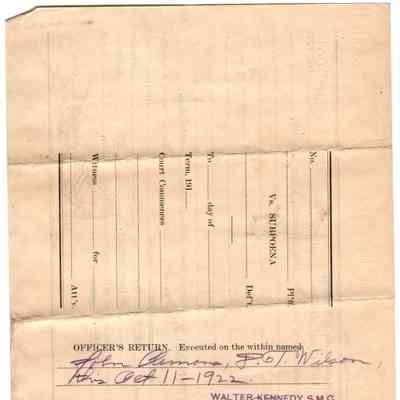 No.
Pl'ff.
Vs. SUBPOENA
Def't.
To day of
Term, 191
Court Commences
Witness for
Att'y.
OFFICER'S RETURN. Executed on the within named
John Clemons, Wilson,
this Oct 11-1922
WALTER KENNEDY S.M.C.